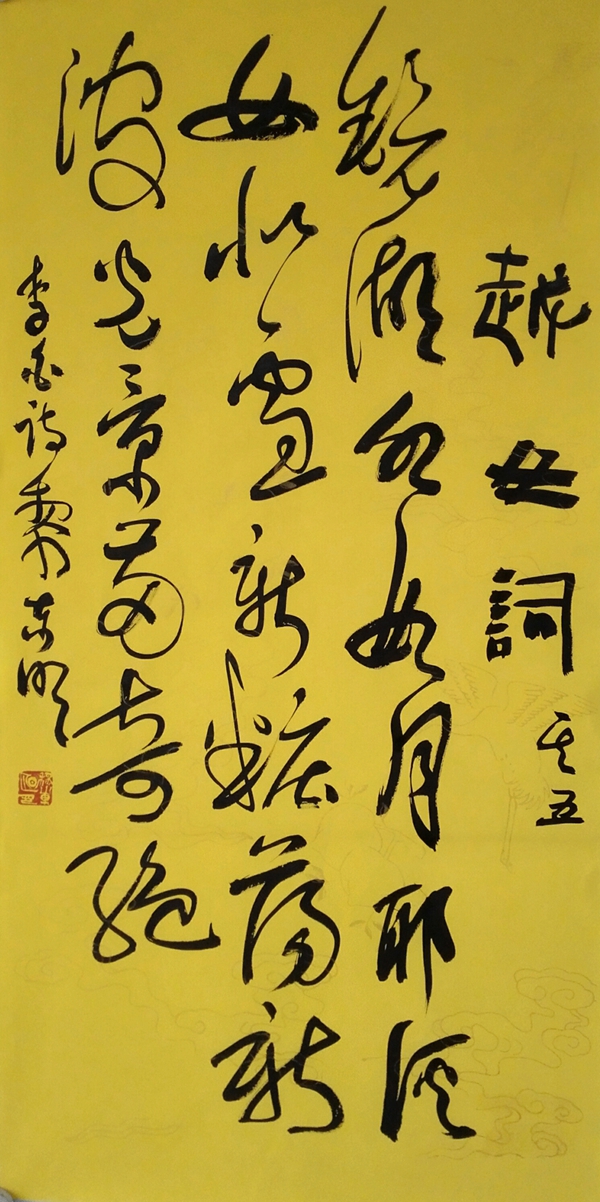 越女詞 其五
鏡湖水如月耶溪
女似雪新粧蕩新
波光景兩奇絕
李白詩 東明